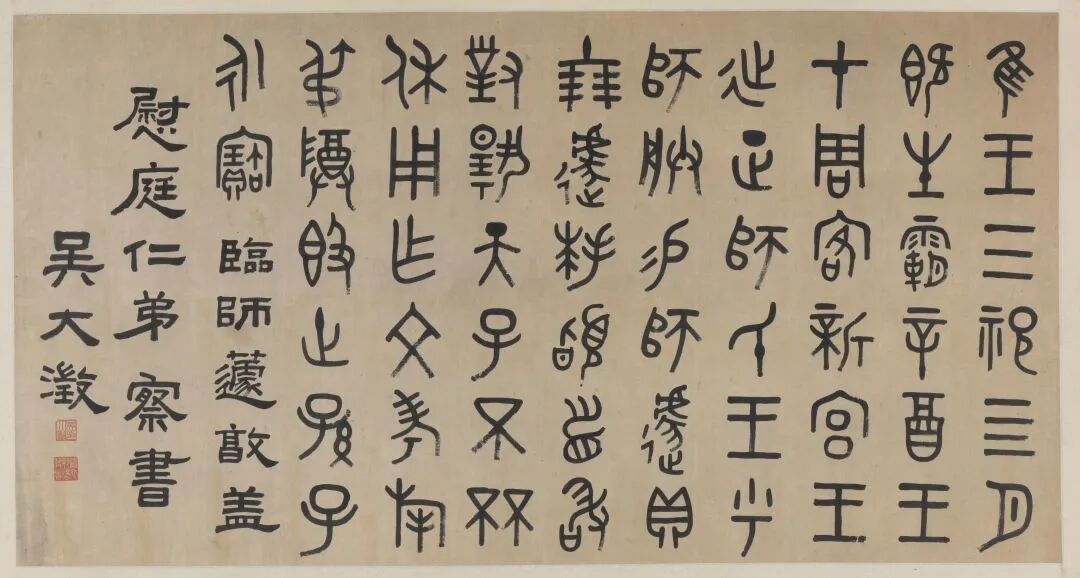 隹王三祀亖月
既生霸辛酉王
才周客新宮王
延正師氏王乎
師朕易師遽貝
十朋遽拜稽首敢
對揚天子不㔻
休用乍文考旄
叔尊𣪘世孫子
永寶 臨師蘧敦蓋
慰庭仁弟察書
吳大澂